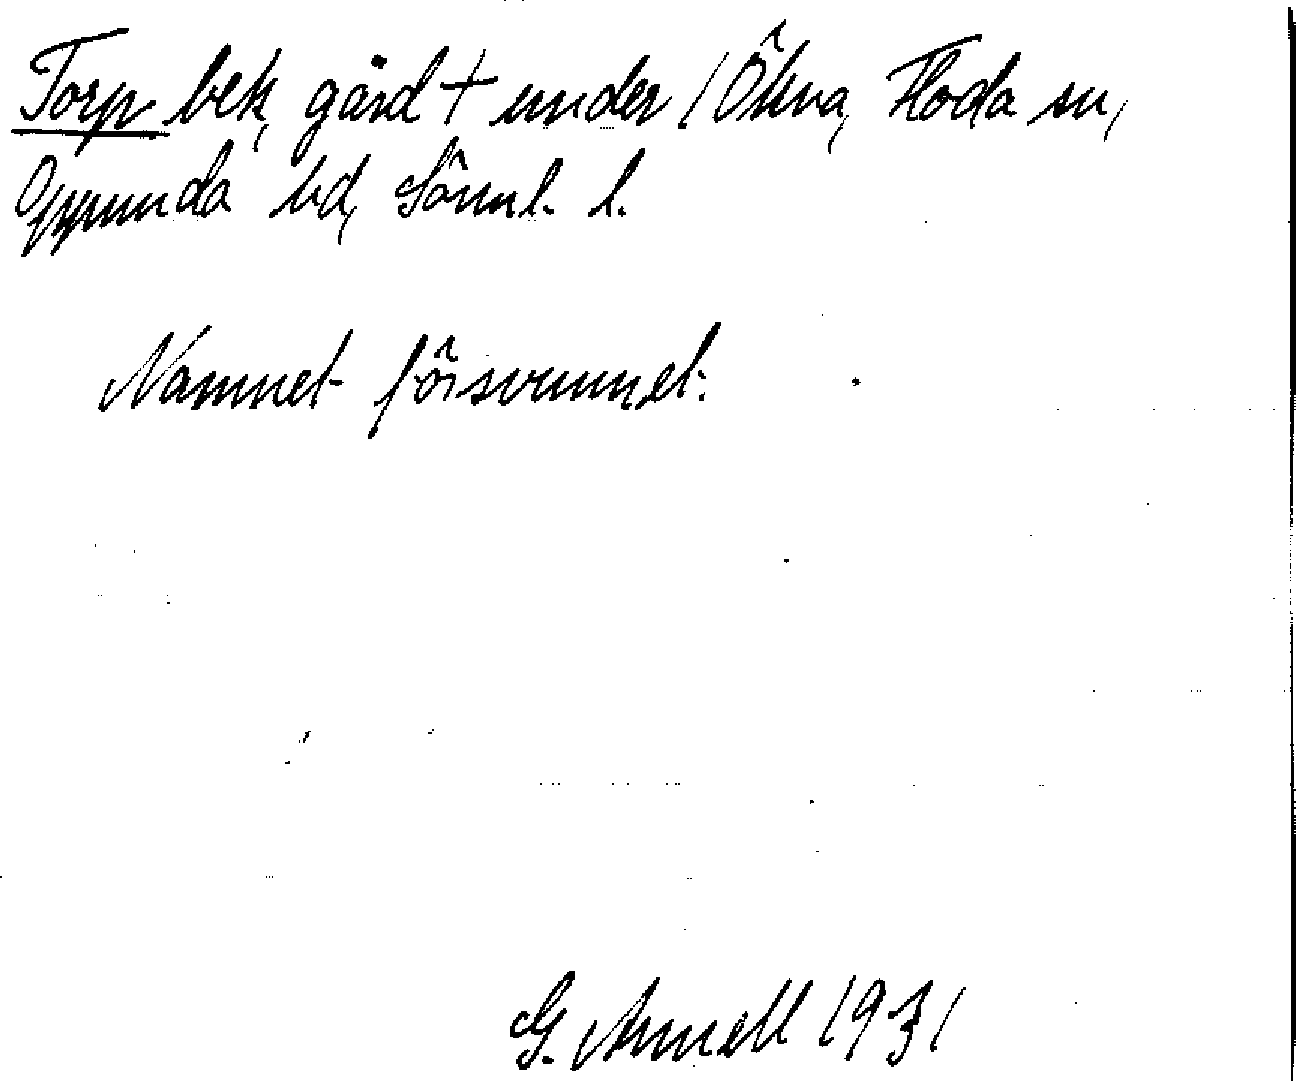 Torp bek, gård + under / Ökna, Floda sn,
Oppunda hd, Sörml. l.
Namnet försvunnet.
G. Arnell 1931